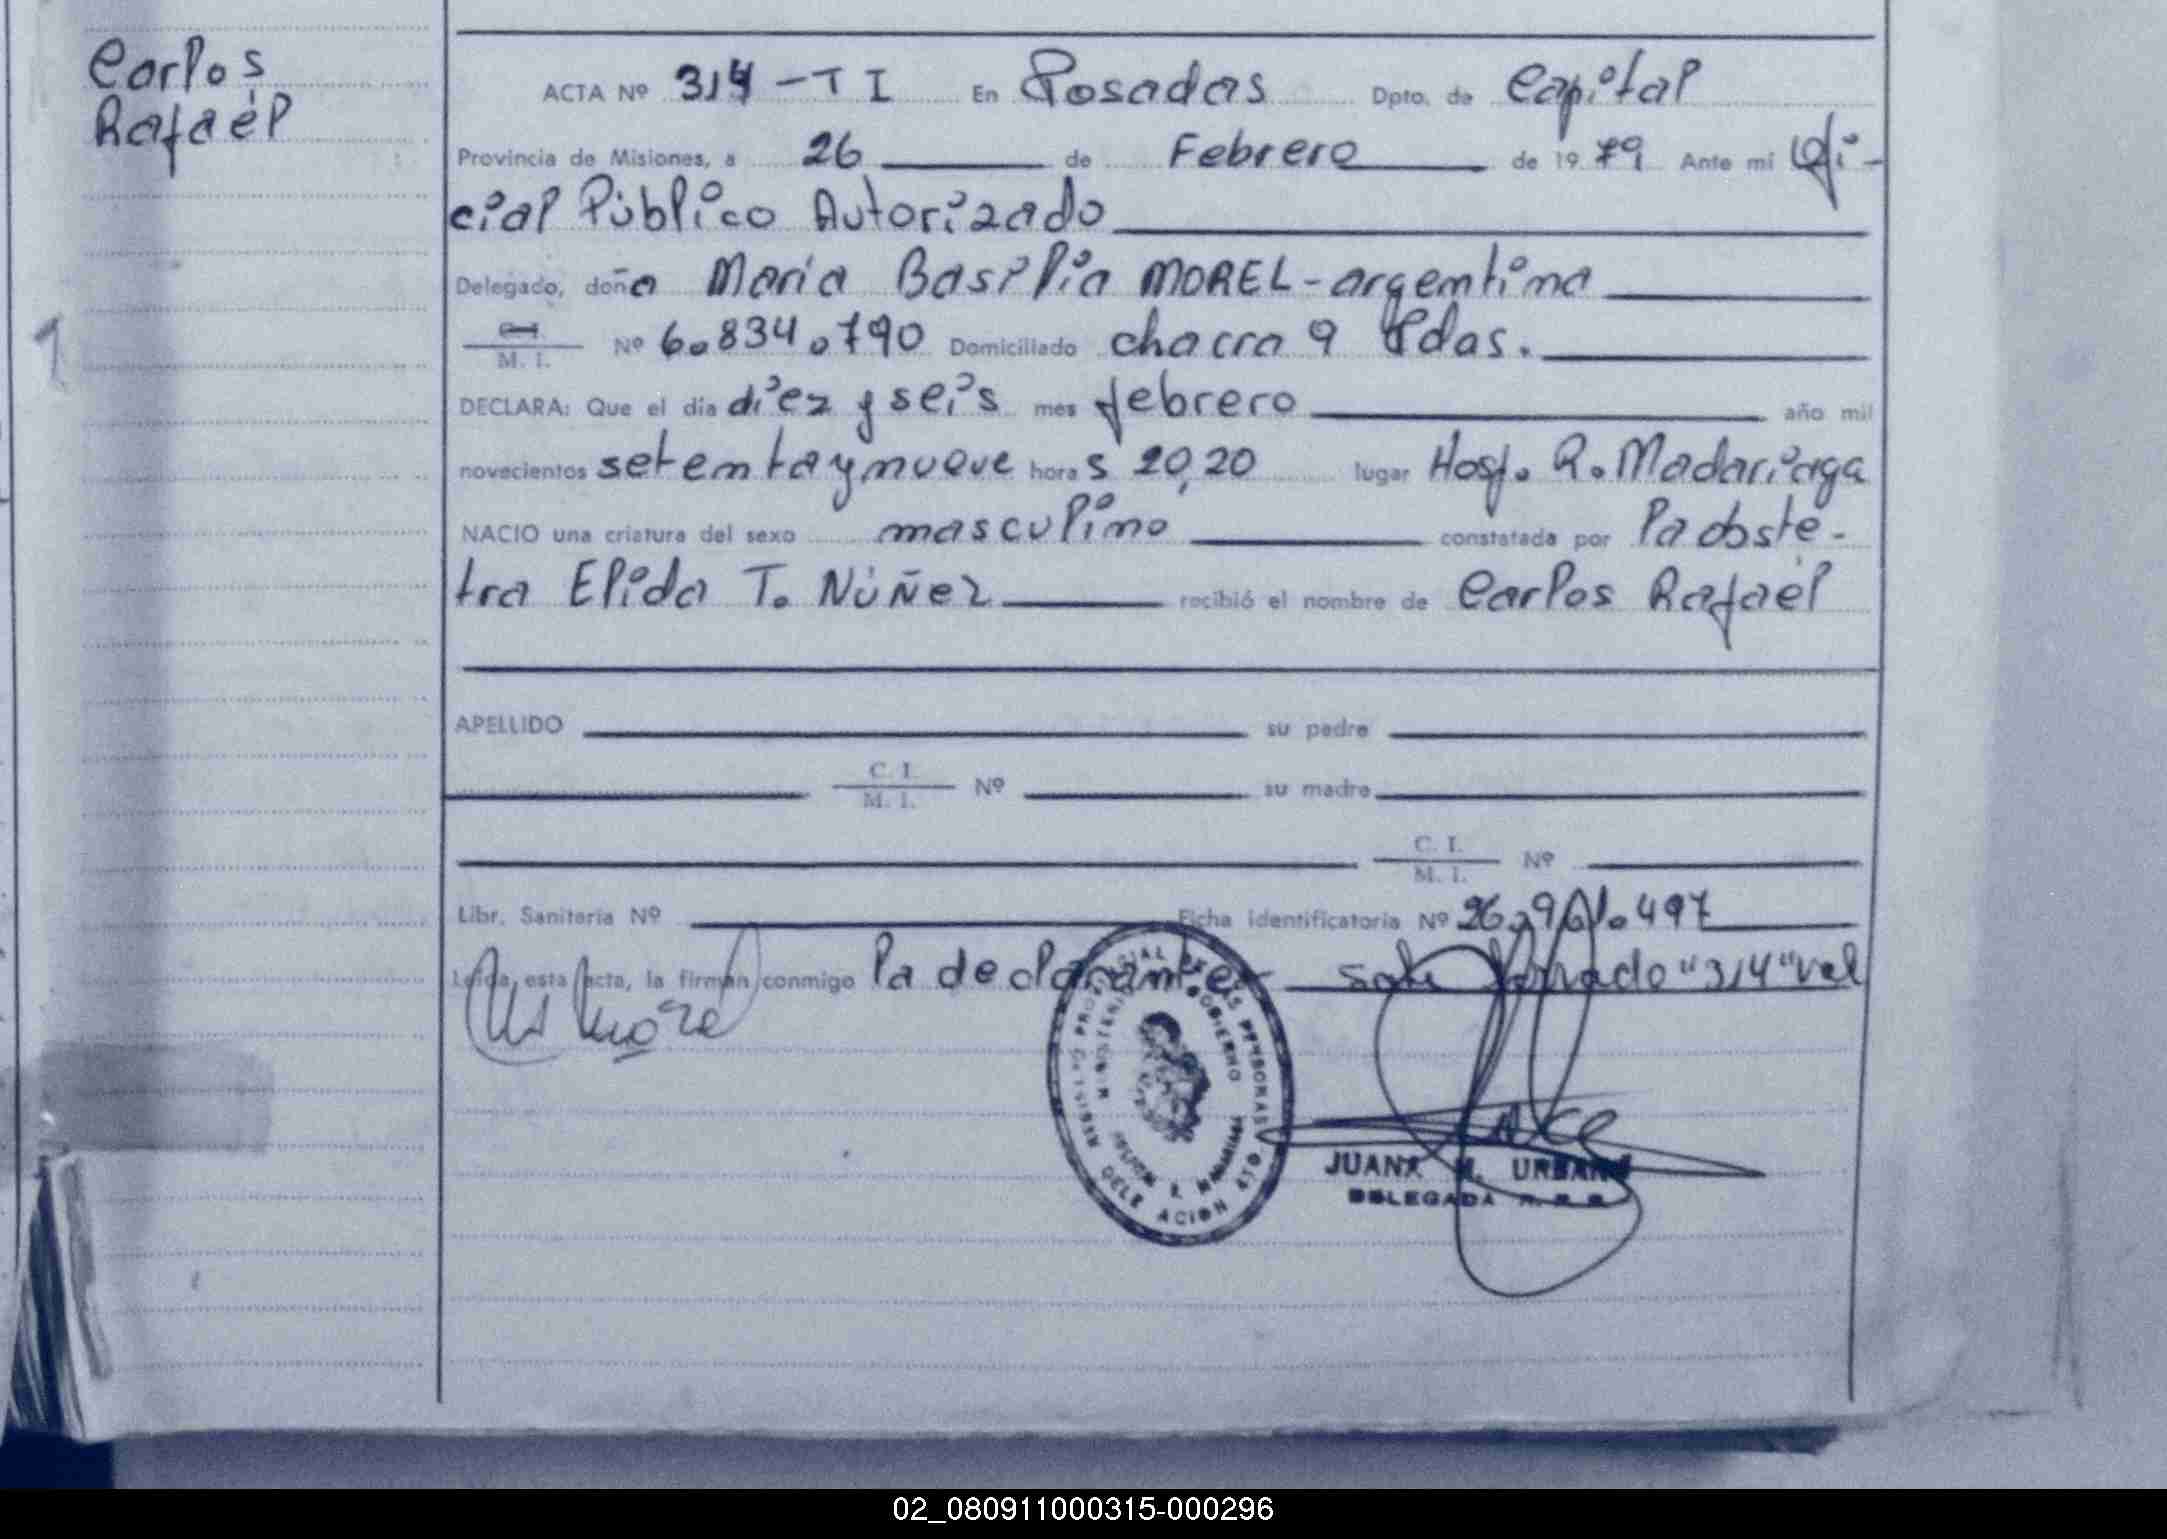 Carlos
Rafaél
ACTA Nº 314 - T I En Posadas Dpto. de Capital
Provincia de Misiones, a 26 de Febrero de 1979 Ante mi Ofi-
cial Público Autorizado
Delegado, doña Maria Basilia MOREL - argentina
M. I. Nº 6.834.790 Domiciliado chacra 9 Pdas.
DECLARA: Que el dia diez y seis mes febrero año mil
novecientos setenta y nueve horas 20,20 lugar Hosp. R. Madariaga
NACIO una criatura del sexo masculino constatada por la obsté-
tra Elida T. Núñez recibió el nombre de Carlos Rafaél
APELLIDO su padre
C. I.
M. I. Nº su madre
C. I.
M. I. Nº
Libr. Sanitaria Nº Ficha identificatoria Nº 26.961.497
Leída, esta acta, la firman conmigo la declarante. sobre borrado "314" vel
JUANA M. URBAN
DELEGADA
02_080911000315-000296